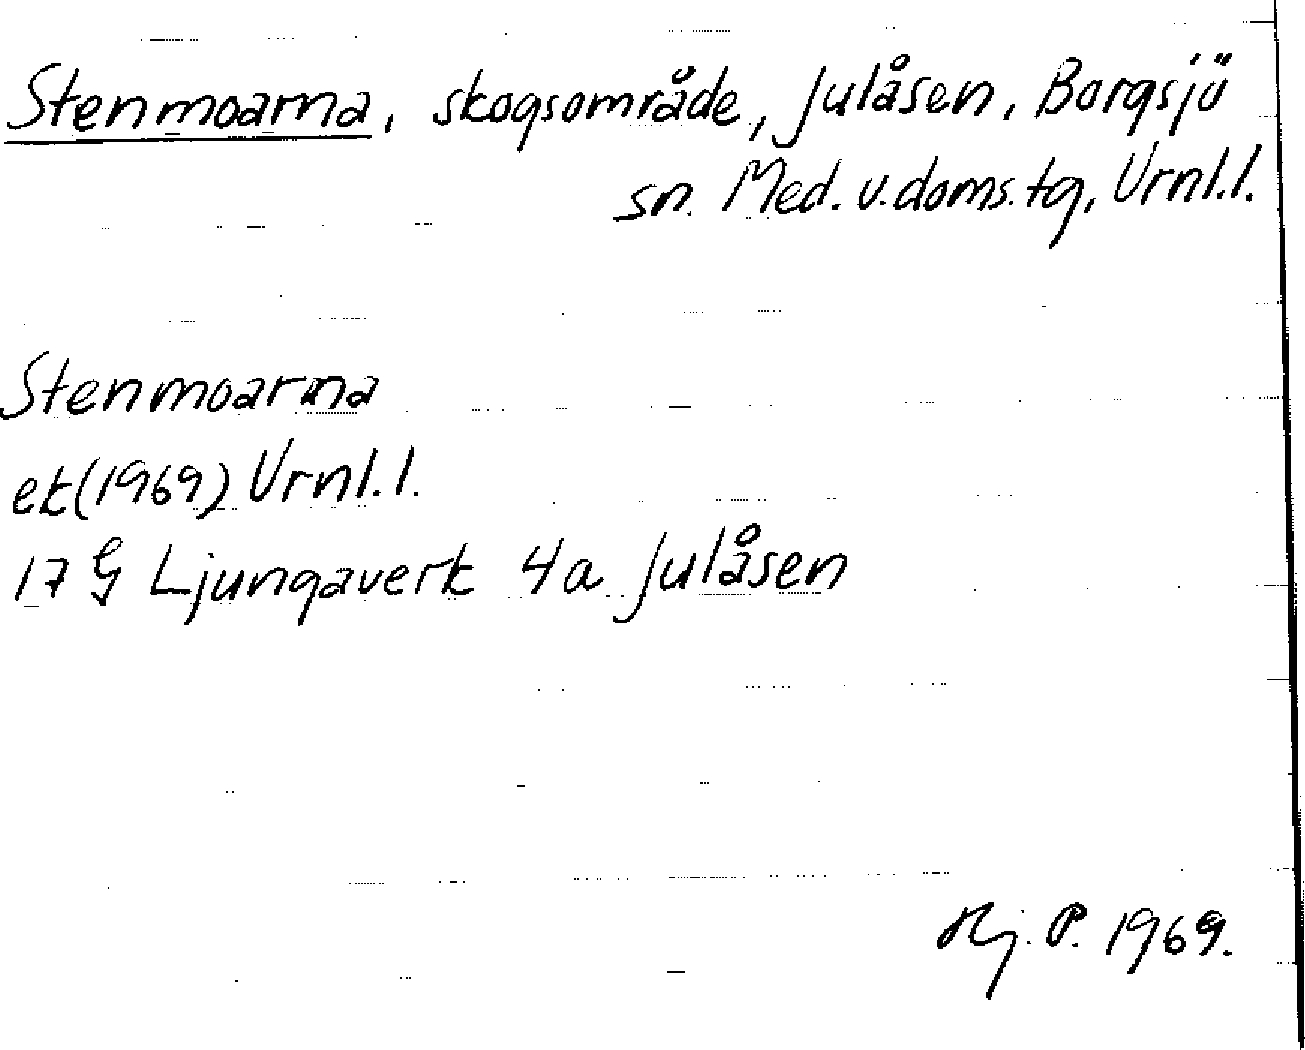 Stenmoarna, skogsområde, Julåsen, Borgsjö
sn. Med. v. doms. tg, Vrnl. l.
Stenmoarna
ek (1969) Vrnl. l.
17 G Ljungaverk 4a Julåsen
Hj. P. 1969.